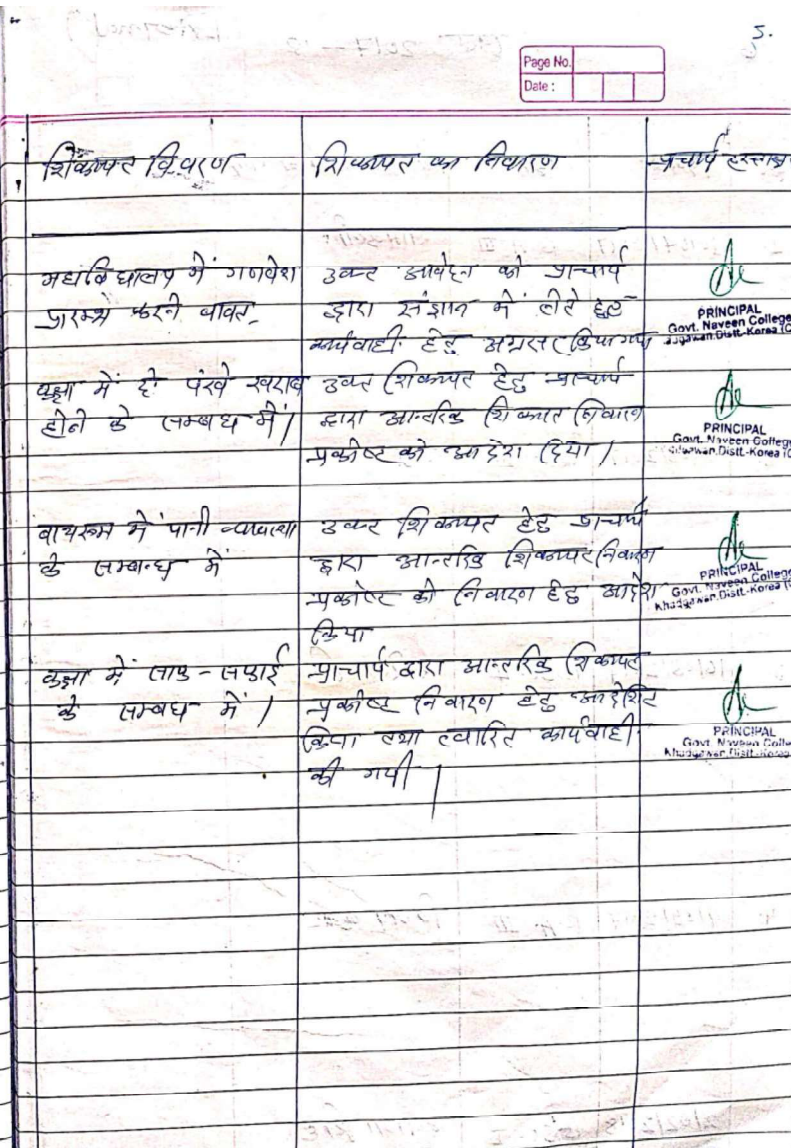 5.
Page No.
Date :
शिकायत विवरण
शिकायत का निवारण
प्राचार्य हस्ताक्षर
महाविद्यालय में गणवेश
प्रारम्भ करने बावत
उक्त आवेदन को प्राचार्य
द्वारा संज्ञान में लेते हुए
कार्यवाही हेतु अग्रसर किया गया
PRINCIPAL
Govt. Naveen College
Distt-Korea (C
कक्षा में दो पंखे खराब
होने के सम्बंध में।
उक्त शिकायत हेतु प्राचार्य
द्वारा आन्तरिक शिकायत निवारण
प्रकोष्ट को आदेश दिया।
PRINCIPAL
Govt. Naveen College
Distt.-Korea (C
बाथरूम में पानी व्यवस्था
के सम्बन्ध में
उक्त शिकायत हेतु प्राचार्य
द्वारा आन्तरिक शिकायत निवारण
प्रकोष्ट को निवारण हेतु आदेश
किया
PRINCIPAL
Govt. Naveen College
Khadgawan Distt.-Korea (C
कक्षा में साफ-सफाई
के सम्बंध में।
प्राचार्य द्वारा आन्तरिक शिकायत
प्रकोष्ट निवारण हेतु आदेशित
किया तथा त्वारित कार्यवाही
की गयी।
PRINCIPAL
Govt. Naveen Colle
Khadgawan Distt.-Korea